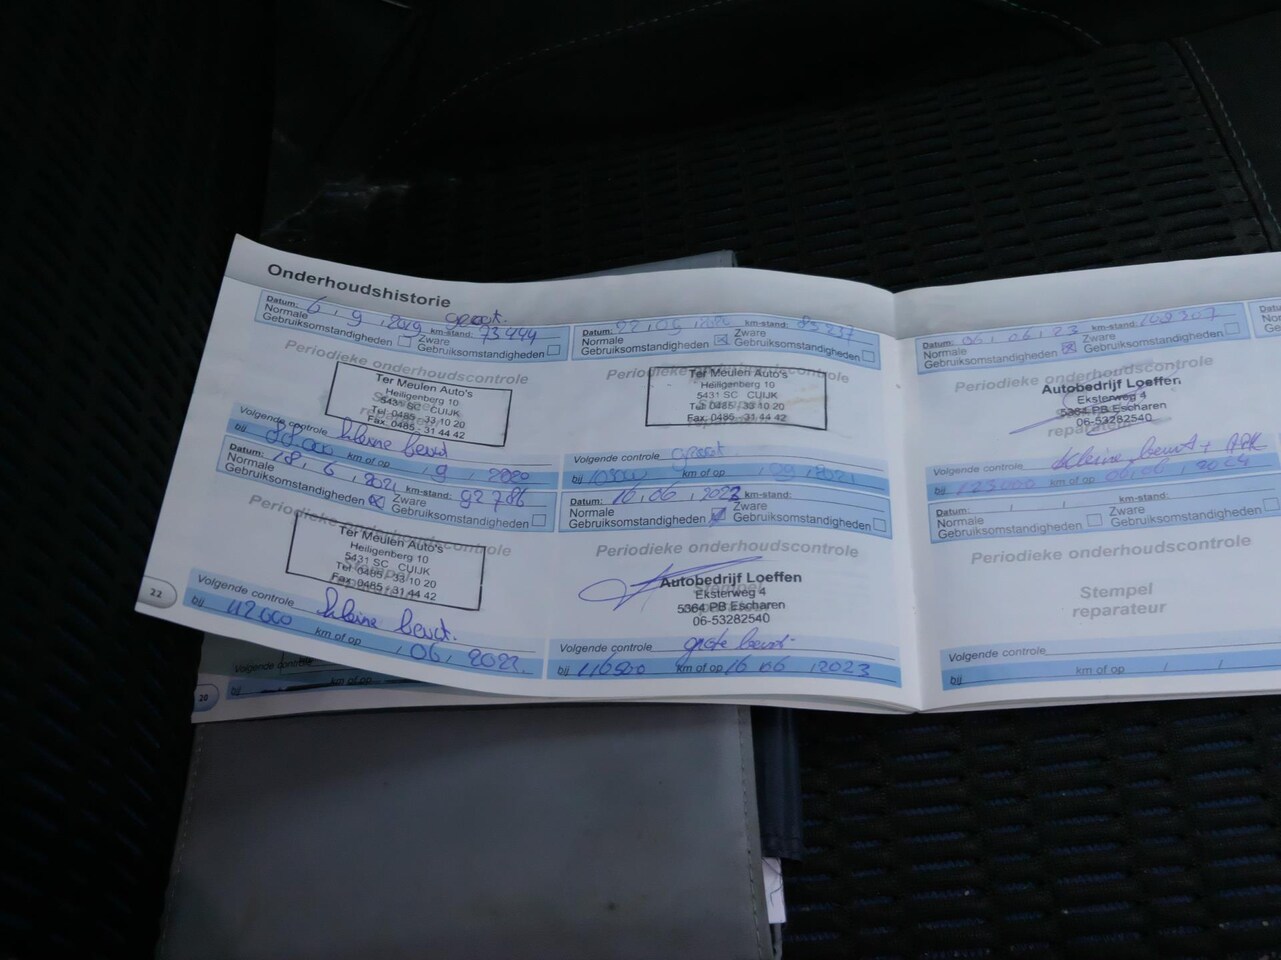 Onderhoudshistorie
Datum: 6 , 9 , 2019 groot.
Normale km-stand: 73444
Gebruiksomstandigheden Zware
Gebruiksomstandigheden
Periodieke onderhoudscontrole
Ter Meulen Auto's
Heiligenberg 10
5431 SC CUIJK
Tel 0485 - 33 10 20
Fax. 0485 - 31 44 42
Volgende controle kleine beurt
bij 88.000 km of op , 9 , 2020
Datum: 18 , 6 , 2021 km-stand: 92786
Normale Zware
Gebruiksomstandigheden Gebruiksomstandigheden
Periodieke onderhoudscontrole
Ter Meulen Auto's
Heiligenberg 10
5431 SC CUIJK
Tel 0485 - 33 10 20
Fax. 0485 - 31 44 42
Volgende controle kleine beurt.
bij 112000 km of op , 06 , 2022
22
Volgende controle
bij km of op
20
Datum: 22 , 09 , 2020 km-stand:
Normale Zware
Gebruiksomstandigheden Gebruiksomstandigheden
Periodieke onderhoudscontrole
Ter Meulen Auto's
Heiligenberg 10
5431 SC CUIJK
Tel 0485 - 33 10 20
Fax. 0485 - 31 44 42
Volgende controle groot
bij km of op , 09 , 2021
Datum: 16 , 06 , 2022 km-stand:
Normale Zware
Gebruiksomstandigheden Gebruiksomstandigheden
Periodieke onderhoudscontrole
Stempel
Autobedrijf Loeffen
Eksterweg 4
5364 PB Escharen
06-53282540
Volgende controle grote beurt
bij 116500 km of op 16 , 06 , 2023
Datum: 06 , 06 , 23 km-stand: 108307
Normale Zware
Gebruiksomstandigheden Gebruiksomstandigheden
Periodieke onderhoudscontrole
Autobedrijf Loeffen
Eksterweg 4
5364 PB Escharen
06-53282540
reparateur
Volgende controle kleine beurt + APK
bij 125000 km of op 06 , 06 , 2024
Datum: , , km-stand:
Normale Zware
Gebruiksomstandigheden Gebruiksomstandigheden
Periodieke onderhoudscontrole
Stempel
reparateur
Volgende controle
bij km of op , ,